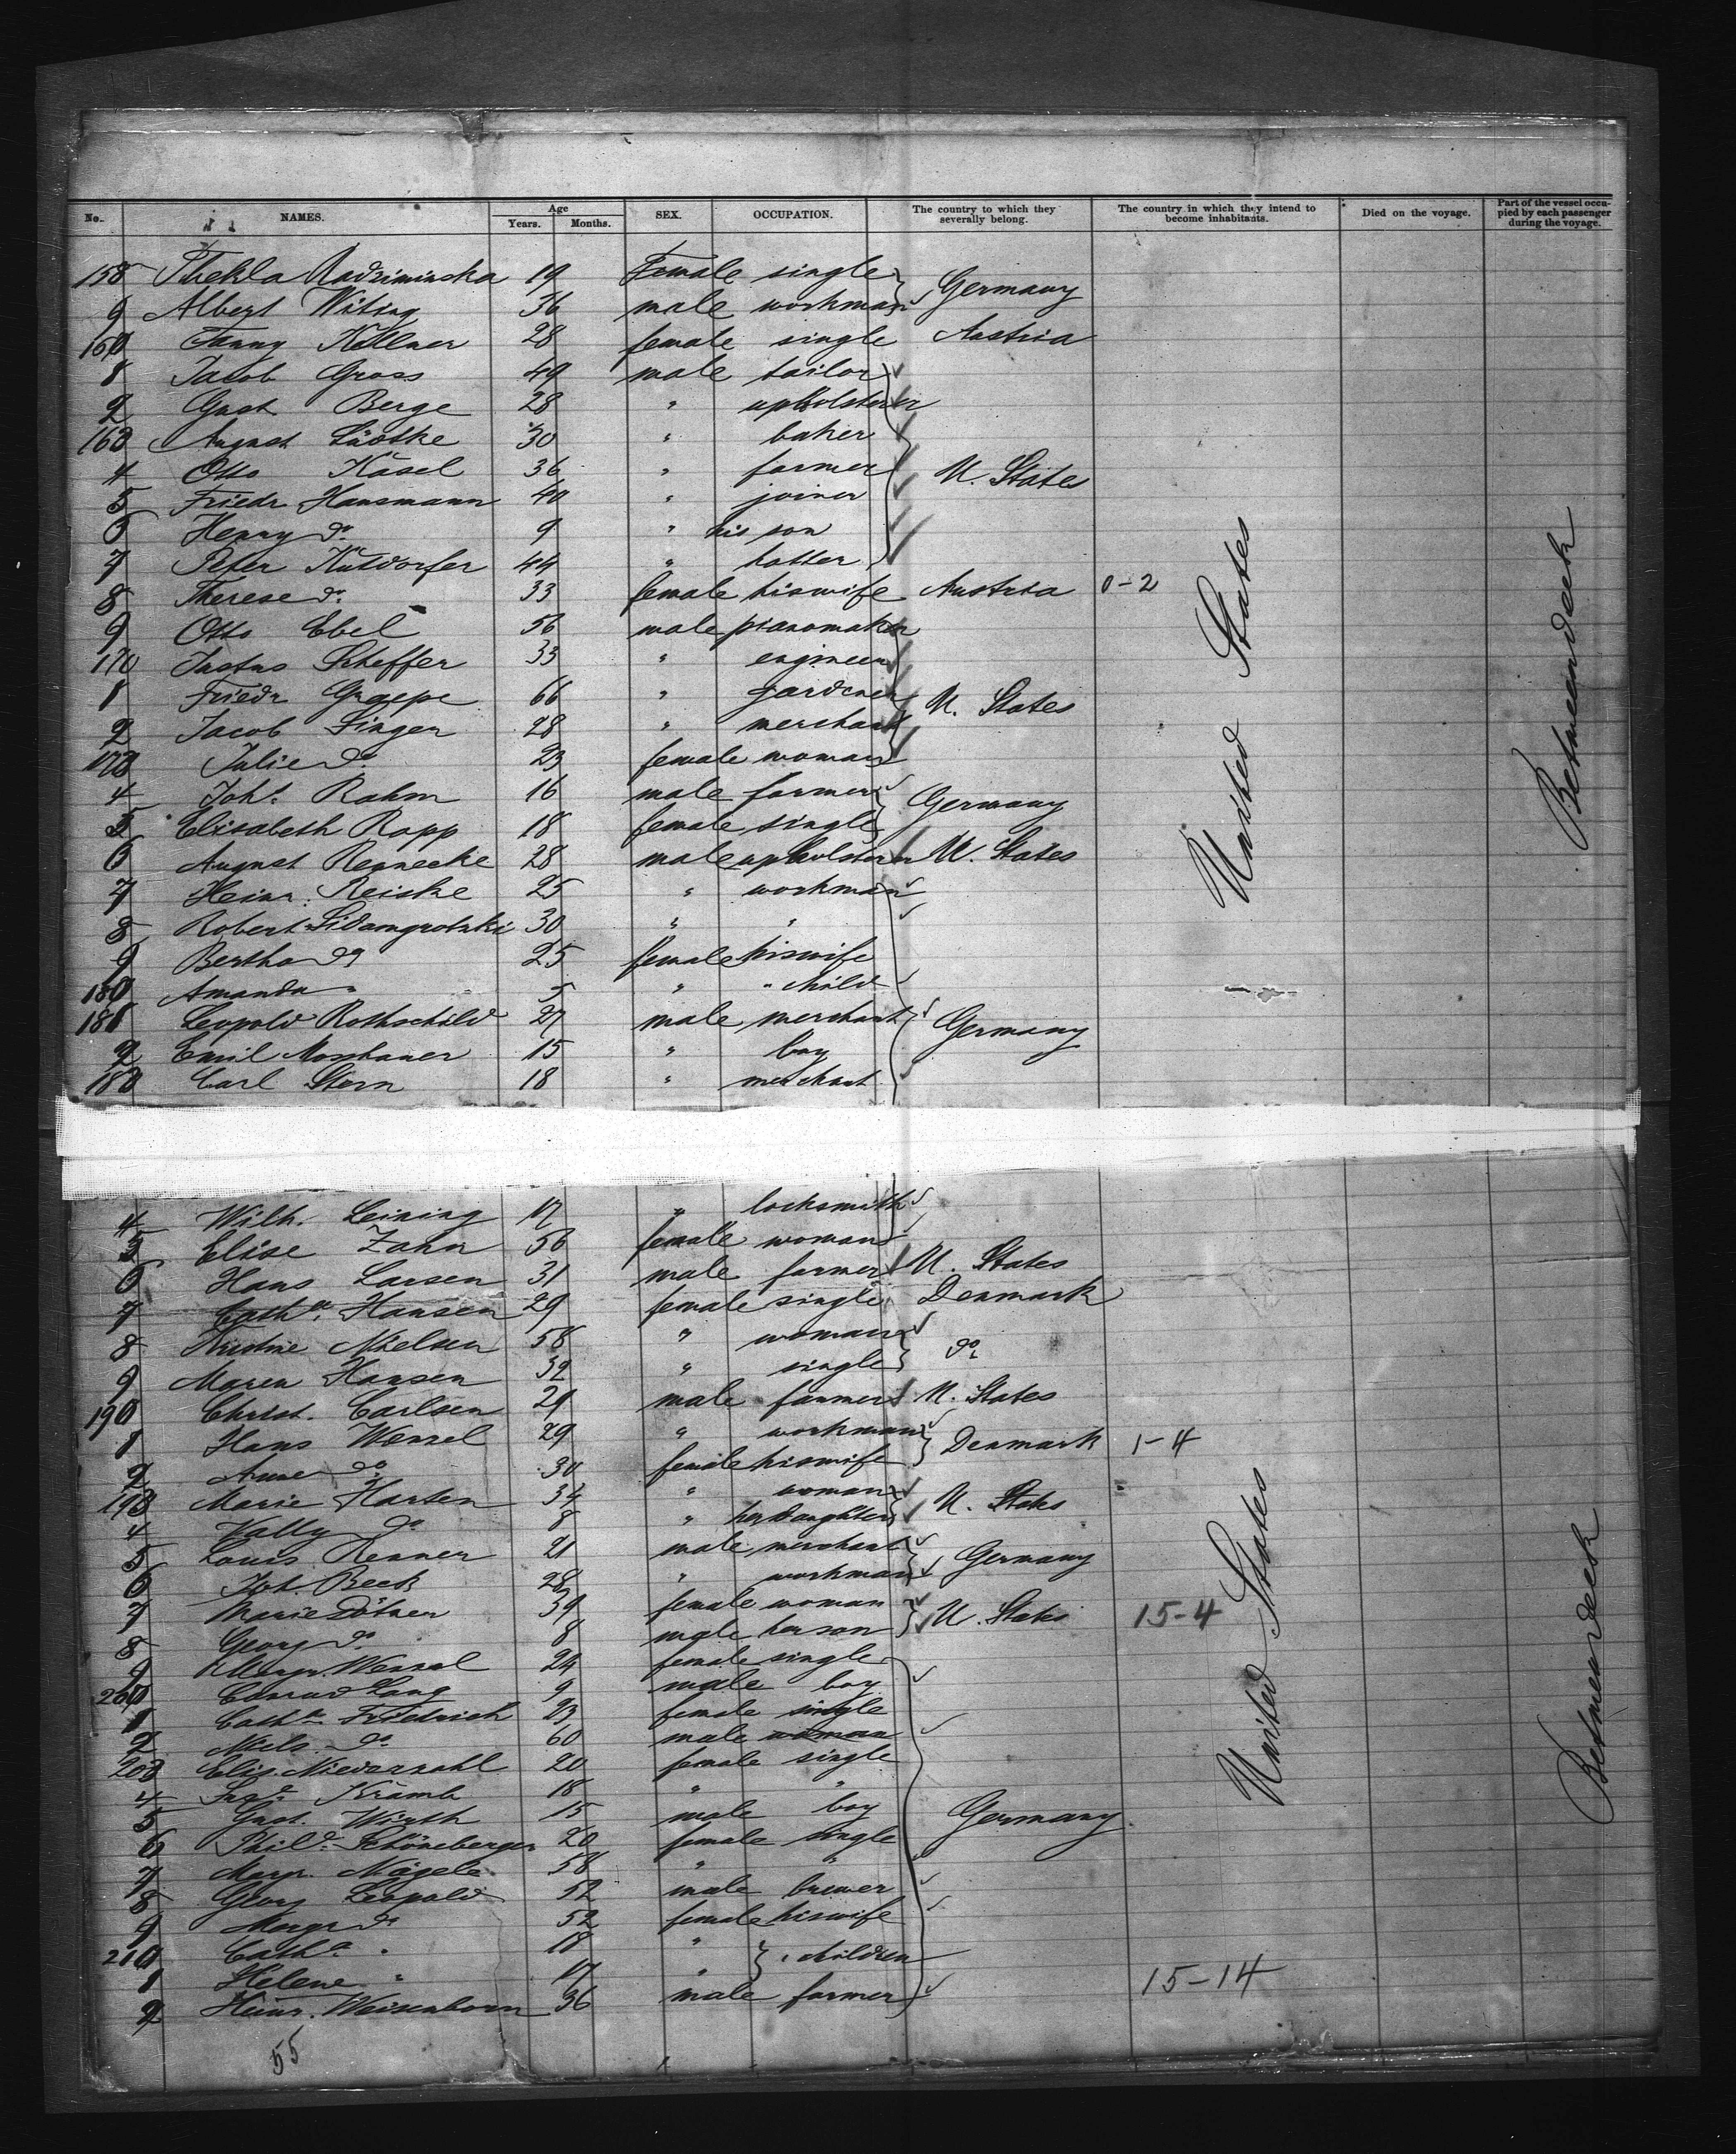 No. NAMES. Age Years. Months. SEX. OCCUPATION. The country to which they severally belong. The country in which they intend to become inhabitants. Died on the voyage. Part of the vessel occupied by each passenger during the voyage.
158 Thekla Radziminska 19 Female single
9 Albert Witing 36 male workman Germany
160 Fanny Köllner 28 female single Austria
1 Jacob Gross 49 male tailor
2 Gust Berge 28 " upholsterer
163 August Lüdtke 30 " baker
4 Otto Käsel 36 " farmer U. States
5 Friedr Hausmann 40 " joiner
6 Henny do 9 " his son
7 Peter 44 " hatter
8 Therese do 33 female his wife Austria 0-2
9 Otto Ebel 56 male pianomaker
170 Justus Scheffer 33 " engineer
1 Friedr Graepe 66 " gardener U. States
2 Jacob Singer 28 " merchant
173 Julie do 23 female woman
4 Joh. Rahm 16 male farmer Germany
5 Elisabeth Rapp 18 female single
6 August Rennecke 28 male upholsterer U. States
7 Heinr. Reiske 25 " workman
8 Robert 30 " "
9 Bertha do 25 female his wife
180 Amanda " 5 " " child
181 Leopold Rothschild 27 male merchant Germany
2 Emil Moshauer 15 " boy
183 Carl Stern 18 " merchant
United States
Betweendeck
4 Wilh. Leining 17 " locksmith
5 Elise Zahn 56 female woman
6 Hans Larsen 31 male farmer U. States
7 Cath. Hansen 29 female single Denmark
8 Kirstine Nielsen 58 " woman do
9 Maren Hansen 32 " single
190 Christ. Carlsen 29 male farmer U. States
1 Hans Wenzel 29 " workman Denmark 1-4
2 Anne do 30 female his wife
193 Marie Harten 34 " woman U. States
4 Vally do 8 " her daughter
5 Louis Renner 21 male merchant Germany
6 Joh. Beck 28 " workman
7 Marie 39 female woman U. States 15-4
8 Georg do 8 male her son
9 Margr. Wenzel 24 female single
200 Conrad Lang 9 male boy
1 Cath. Friedrich 23 female single
2 do 60 male woman
203 Elis. Niederzahl 20 female single
4 Krämb 18 " "
5 Gust. Wirth 15 male boy Germany
6 Phil. Schöneberger 20 female single
7 Margr. Nägele 58 " "
8 Georg Leopold 52 male brewer
9 Margr do 52 female his wife
210 Cath. " 18 " children
1 Helene " 17 " 15-14
2 Heinr. Weisenborn 36 male farmer
United States
Betweendeck
55